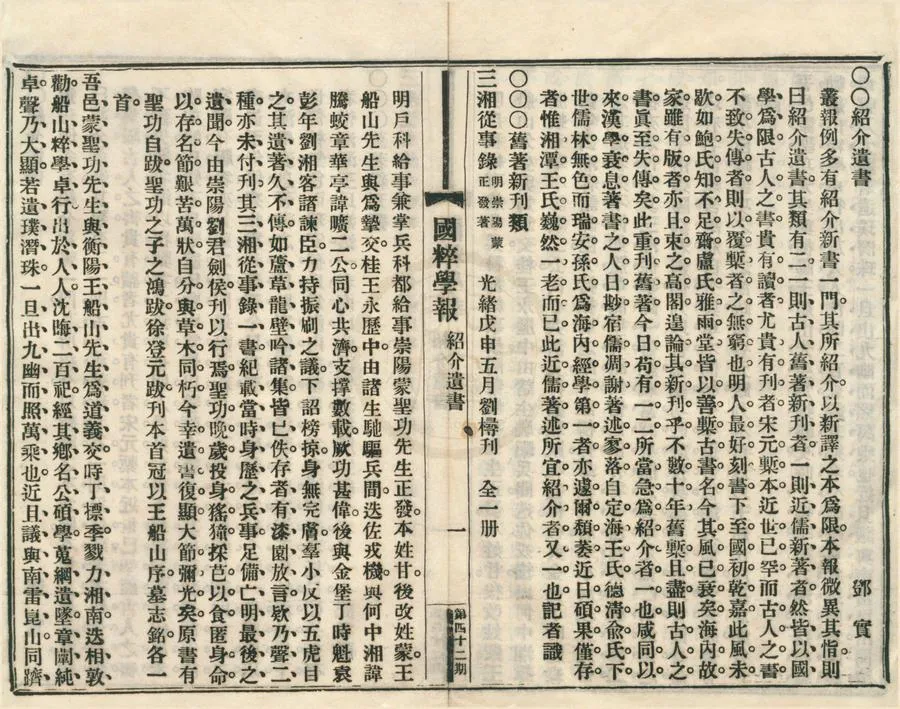 〇〇紹介遺書　鄧實
叢報例多有紹介新書一門其所紹介以新譯之本爲限本報微異其恉則
曰紹介遺書其類有二一則古人舊著新刊者一則近儒新著者然皆以國
學爲限古人之書貴有讀者尤貴有刊者宋元槧本近世已罕而古人之書
不致失傳者則以覆槧者之無窮也明人最好刻書下至國初乾嘉此風未
歇如鮑氏知不足齋盧氏雅雨堂皆以善槧古書名今其風已衰矣海內故
家雖有版者亦且束之高閣遑論其新刊乎不數十年舊槧且盡則古人之
書眞至失傳矣此重刊舊著今日苟有一二所當急爲紹介者一也咸同以
來漢學衰息著書之人日尠宿儒凋謝著述寥落自定海王氏德清兪氏下
世儒林無色而瑞安孫氏爲海內經學第一者亦遽爾頹萎近日碩果僅存
者惟湘潭王氏巍然一老而已此近儒著述所宜紹介者又一也記者識
〇〇〇舊著新刊類
三湘從事錄　明崇陽蒙正發著　光緒戊申五月劉㯷刊　全一册
國粹學報　紹介遺書　一　第四十二期
明戶科給事兼掌兵科都給事崇陽蒙聖功先生正發本姓甘後改姓蒙王
船山先生與爲摯交桂王永歷中由諸生馳驅兵間迭佐戎機與何中湘諱
騰蛟章華亭諱曠二公同心共濟支撐數載厥功甚偉後與金堡丁時魁袁
彭年劉湘客諸諫臣力持振刷之議下詔榜掠身無完膚羣小反以五虎目
之其遺著久不傳如蘆草龍壁吟諸集皆已佚存者有漆園放言欵乃聲二
種亦未付刊其三湘從事錄一書紀載當時身歷之兵事足備亡明最後之
遺聞今由崇陽劉君劍侯刊以行焉聖功晚歲投身猺獞採芑以食匿身命
以存名節艱苦萬狀自分與草木同朽今幸遺書復顯大節彌光矣原書有
聖功自跋聖功之子之鴻跋徐登元跋刊本首冠以王船山序墓志銘各一
首
吾邑蒙聖功先生與衡陽王船山先生爲道義交時丁摽季戮力湘南迭相敦
勸船山粹學卓行出於人人沈晦二百祀經其鄉名公碩學蒐綱遺墜章闡純
卓聲乃大顯若遺璞潛珠一旦出九幽而照萬乘也近且議與南雷崑山同躋